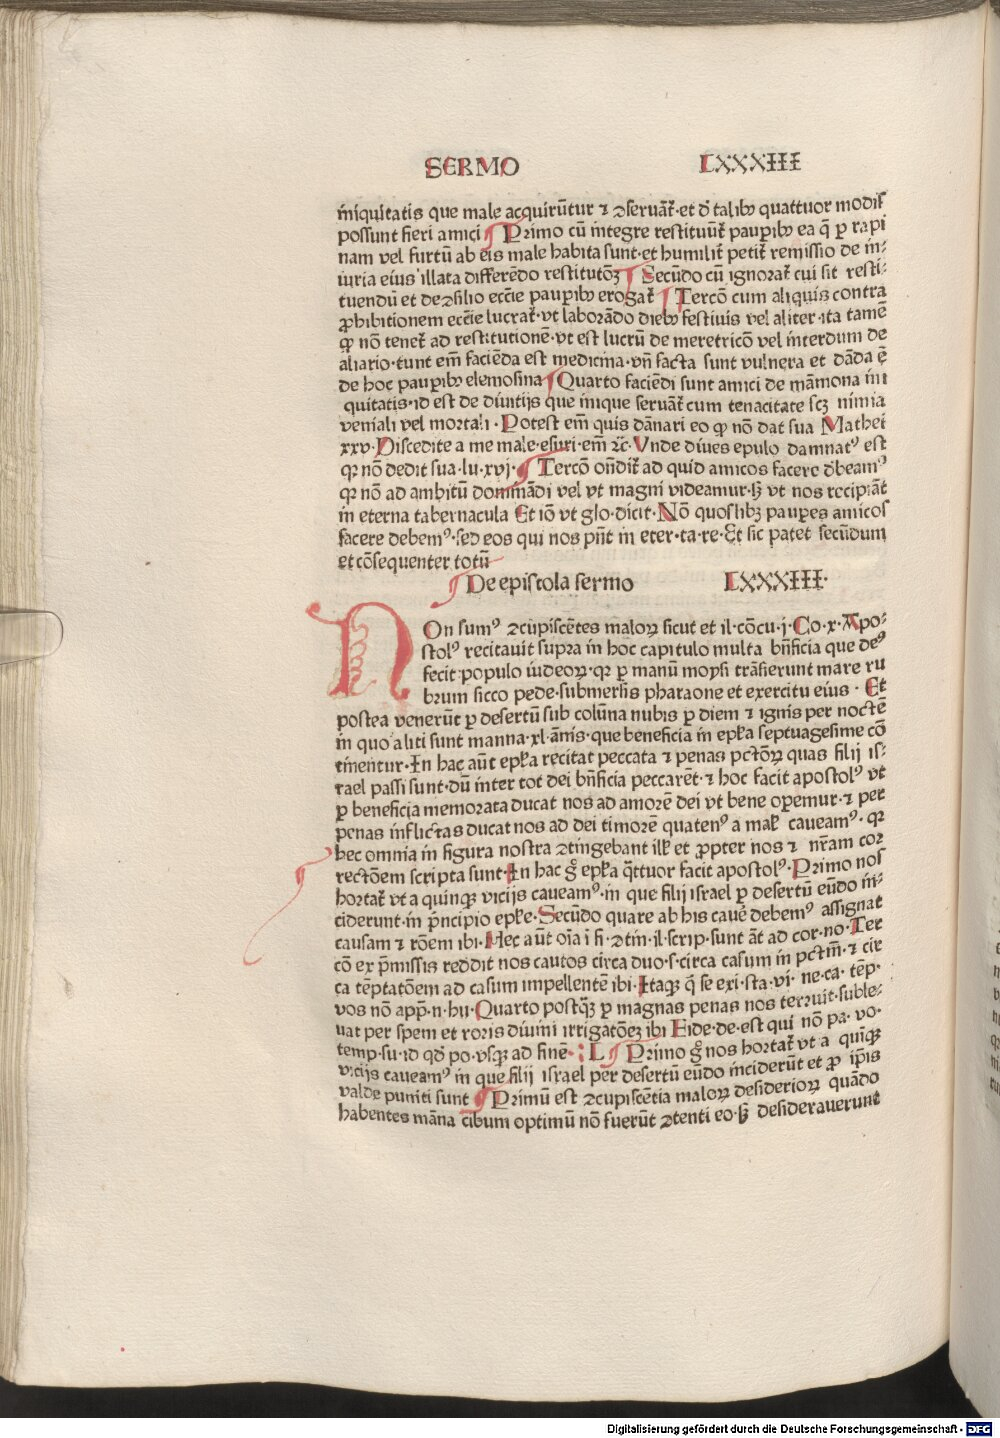 SERMO LXXXIII
iniquitatis que male acquirūtur ⁊ ꝯseruāt᷑·et ď talibꝰ quattuor modis
possunt fieri amici ¶ Primo cū integre restituūt᷑ pauꝑibꝰ ea ꝙ ꝑ rapi
nam vel furtū ab eis male habita sunt·et humilit᷑ petit᷑ remissio de in-
iuria eius illata differēdo restitutōꝫ ¶ Secūdo cū ignorat᷑ cui sit resti-
tuendū et de ꝯsilio ecc̄ie pauꝑibꝰ erogat᷑ ¶ Tercō cum aliquis contra
ꝓhibitionem ecc̄ie lucrat᷑·vt laborādo diebꝰ festiuis vel aliter·ita tamē
ꝙ nō tenet᷑ ad restitutionē·vt est lucrū de meretricō vel interdum de
aliario·tunt em̄ faciēda est medicina·vn̄ facta sunt vulnera et dāda ē
de hoc pauꝑibꝰ elemosina ¶ Quarto faciēdi sunt amici de māmona ini
quitatis·id est de diuitijs que inique seruāt᷑ cum tenacitate scꝫ nimia
veniali vel mortali·Potest em̄ quis dānari eo ꝙ nō dat sua Mathei
xxv·Discedite a me male·esuri·em̄ ⁊c̄·Vnde diues epulo damnatꝰ est
qꝛ nō dedit sua·lu·xvj·¶ Tercō on̄dit᷑ ad quid amicos facere ďbeamꝰ
qꝛ nō ad ambitū domināndi vel vt magni videamur·sꝫ vt nos recipiāt
in eterna tabernacula Et iō vt glo·dicit·Nō quoslibꝫ pauꝑes amicos
facere debemꝰ·sed eos qui nos pn̄t in eter·ta·re·Et sic patet secūdum
et cōsequenter totū
¶ De epistola sermo LXXXIII·
NOn sumꝰ ꝯcupiscētes maloꝝ sicut et il·cōcu·j·Co·x·Apo-
stolꝰ recitauit supra in hoc capitulo multa bn̄ficia que deꝰ
fecit populo iudeoꝝ·qꝛ ꝑ manū moysi trāsierunt mare ru
brum sicco pede·submersis pharaone et exercitu eius·Et
postea venerūt ꝑ desertū sub colūna nubis ꝑ diem ⁊ ignis per noctē
in quo aliti sunt manna·xl·ānis·que beneficia in epl̄a septuagesime cō
tinentur·In hac aūt epl̄a recitat peccata ⁊ penas pctōꝝ quas filij is-
rael passi sunt·dū inter tot dei bn̄ficia peccarēt·⁊ hoc facit apostolꝰ vt
ꝑ beneficia memorata ducat nos ad amorē dei vt bene oꝑemur·⁊ per
penas inflictas ducat nos ad dei timorē quatenꝰ a mal᷑ caueamꝰ·qꝛ
hec omnia in figura nostra ꝯtingebant ill᷑ et ꝓpter nos ⁊ nr̄am cor
rectōem scripta sunt·In hac g̊ epl̄a q̄ttuor facit apostolꝰ·Primo nos
hortat᷑ vt a quinqꝫ vicijs caueamꝰ·in que filij israel ꝑ desertū eūdo in-
ciderunt·in p̄ncipio epl̄e·Secūdo quare ab his cauē debemꝰ assignat
causam ⁊ rōem ibi·Hec aūt oīa i fi·ꝯtin·il·scrip·sunt āt ad cor·no·Ter
cō ex p̄missis reddit nos cautos circa duo·s·circa casum in pctm̄·⁊ cir
ca tēptatōem ad casum impellentē ibi·Itaqꝫ q̄ se exi·sta·vi·ne·ca·tēp·
vos nō app̄·n·hu·Quarto postq̄ꝫ ꝑ magnas penas nos terruit·suble-
uat per spem et roris diuini irrigatōeꝫ ibi Eide·de·est qui nō pa·vo·
temp·su·id qď po·vsqꝫ ad finē·:L ¶ Primo g̊ nos hortat᷑ vt a quīqꝫ
vicijs caueamꝰ in que filij israel per desertū eūdo inciderūt et ꝓ ip̄is
valde puniti sunt ¶ Primū est ꝯcupiscētia maloꝝ desiderioꝝ quādo
habentes māna cibum optimū nō fuerūt ꝯtenti eo·sꝫ desiderauerunt
Digitalisierung gefördert durch die Deutsche Forschungsgemeinschaft - DFG